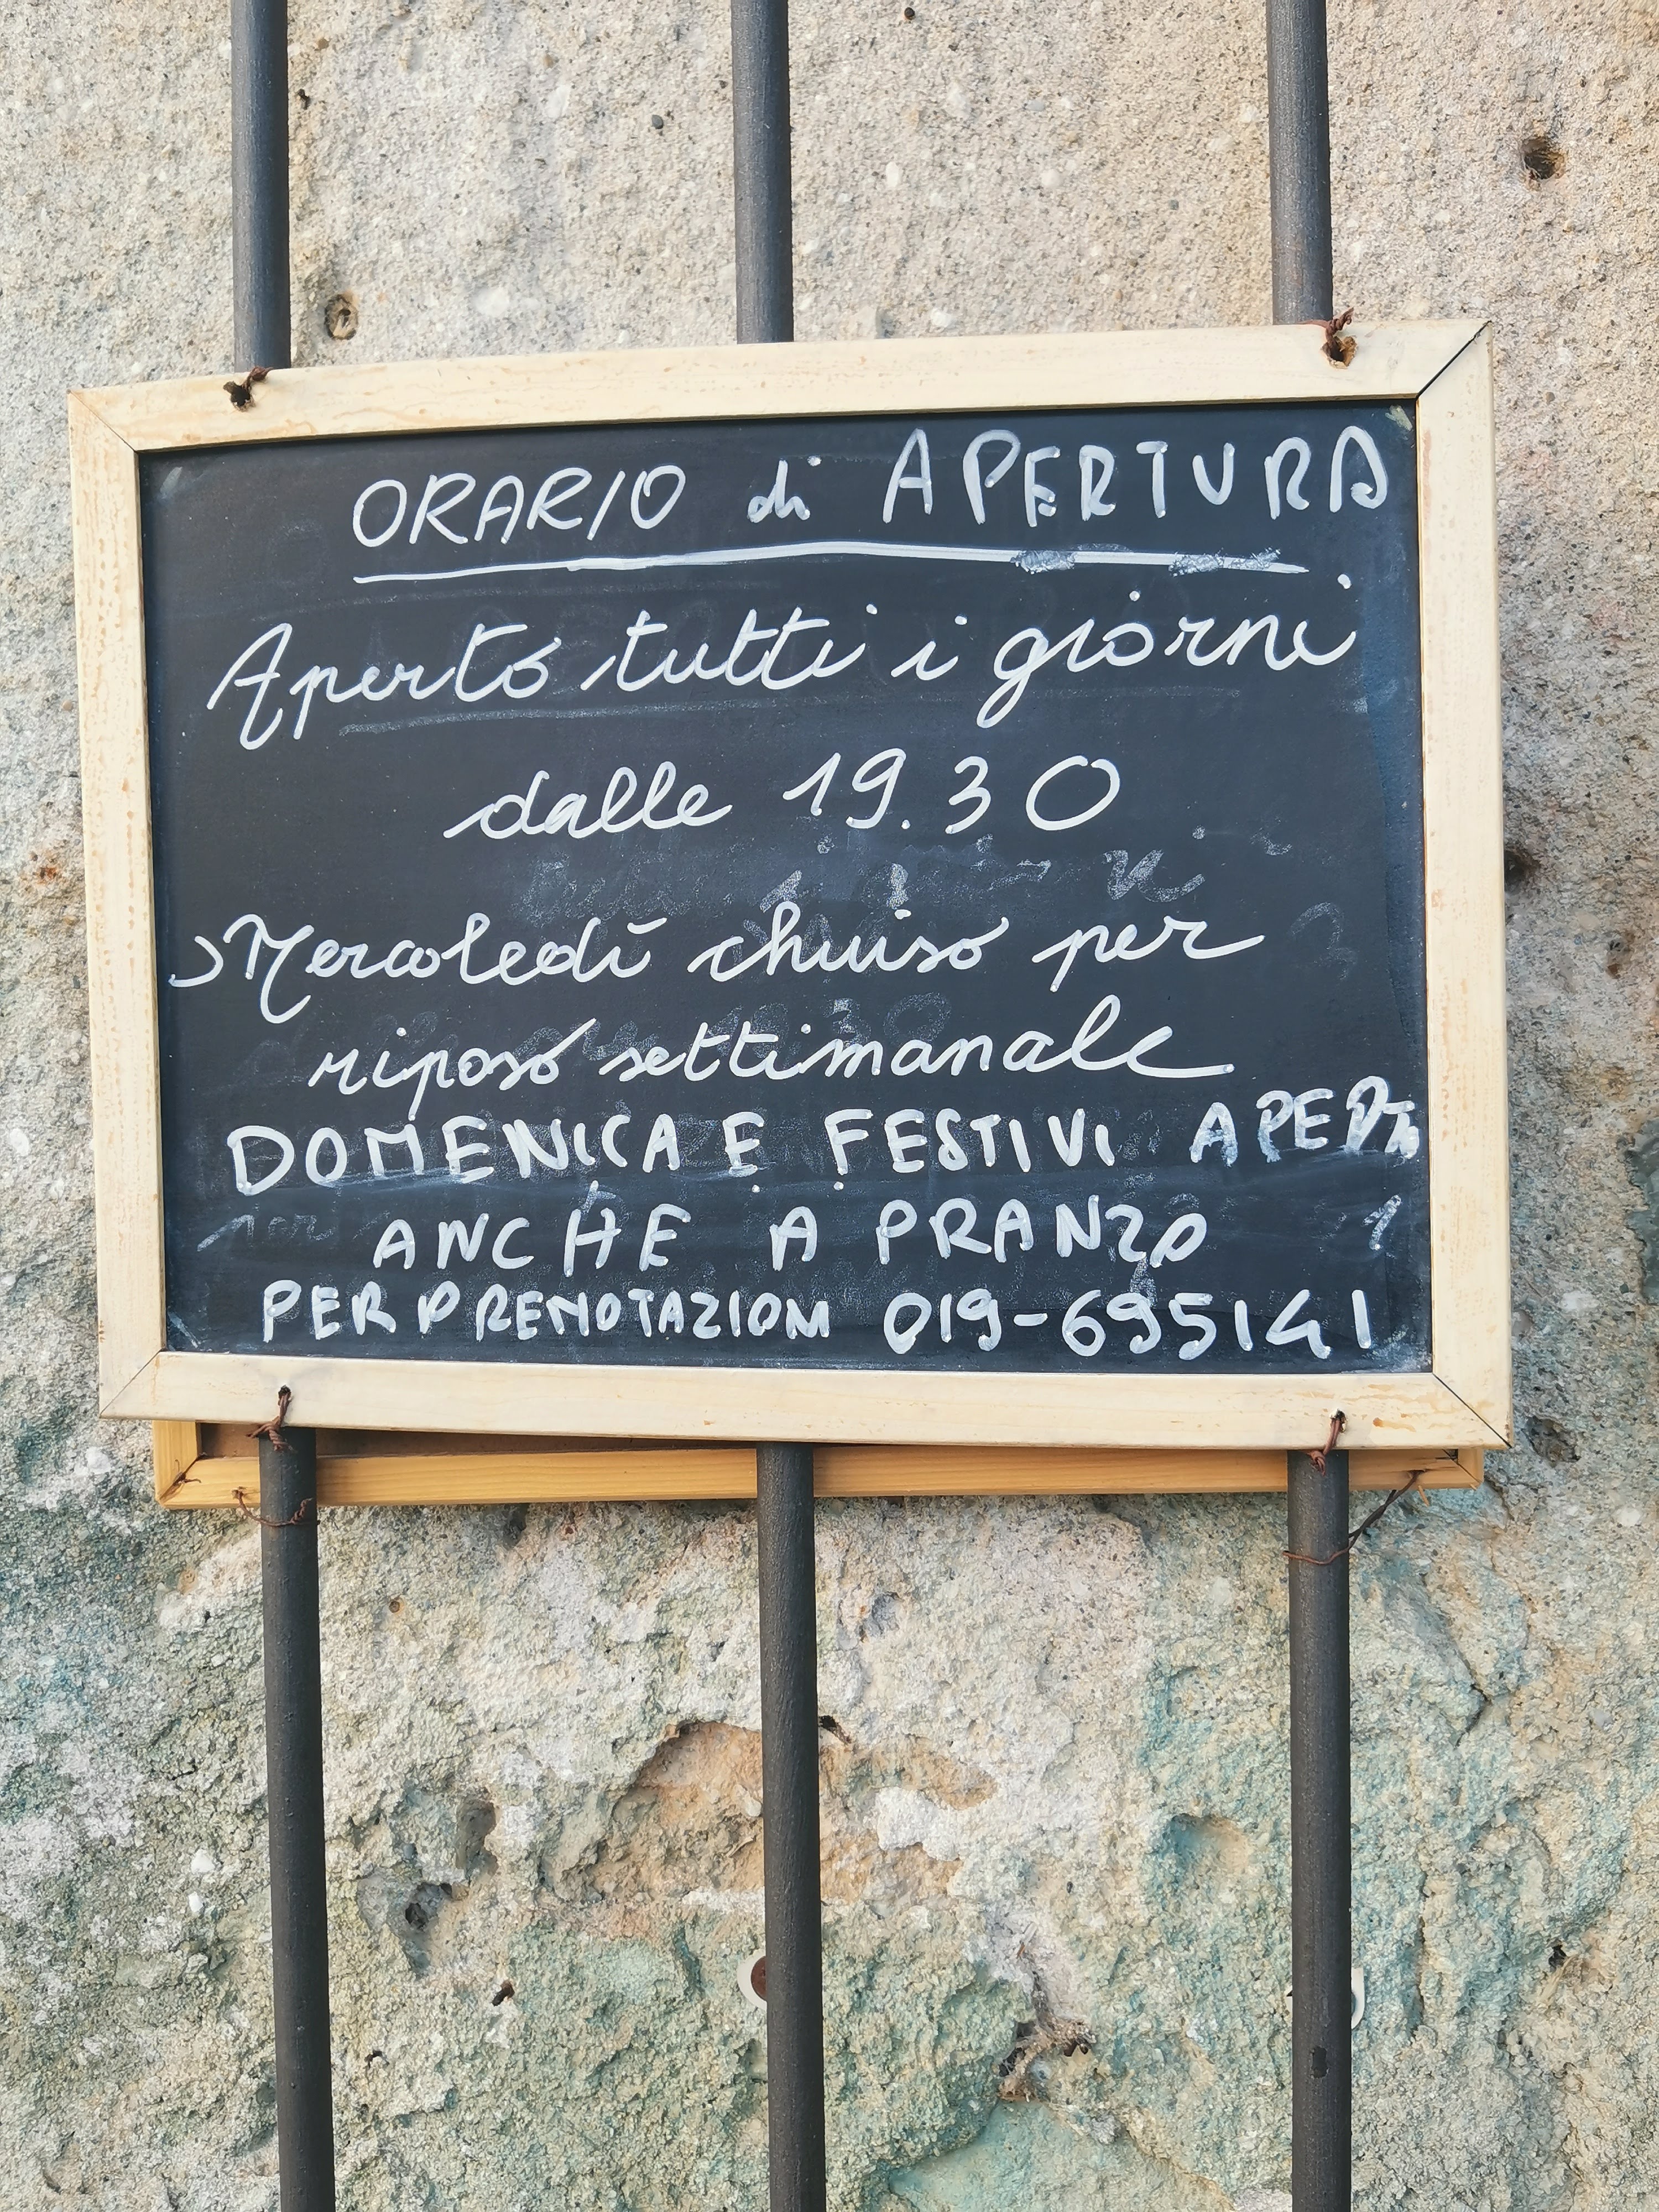 ORARIO di APERTURA
Aperto tutti i giorni
dalle 19.30
Mercoledì chiuso per
riposo settimanale
DOMENICA E FESTIVI APERTI
ANCHE A PRANZO
PER PRENOTAZIONI 019-695141